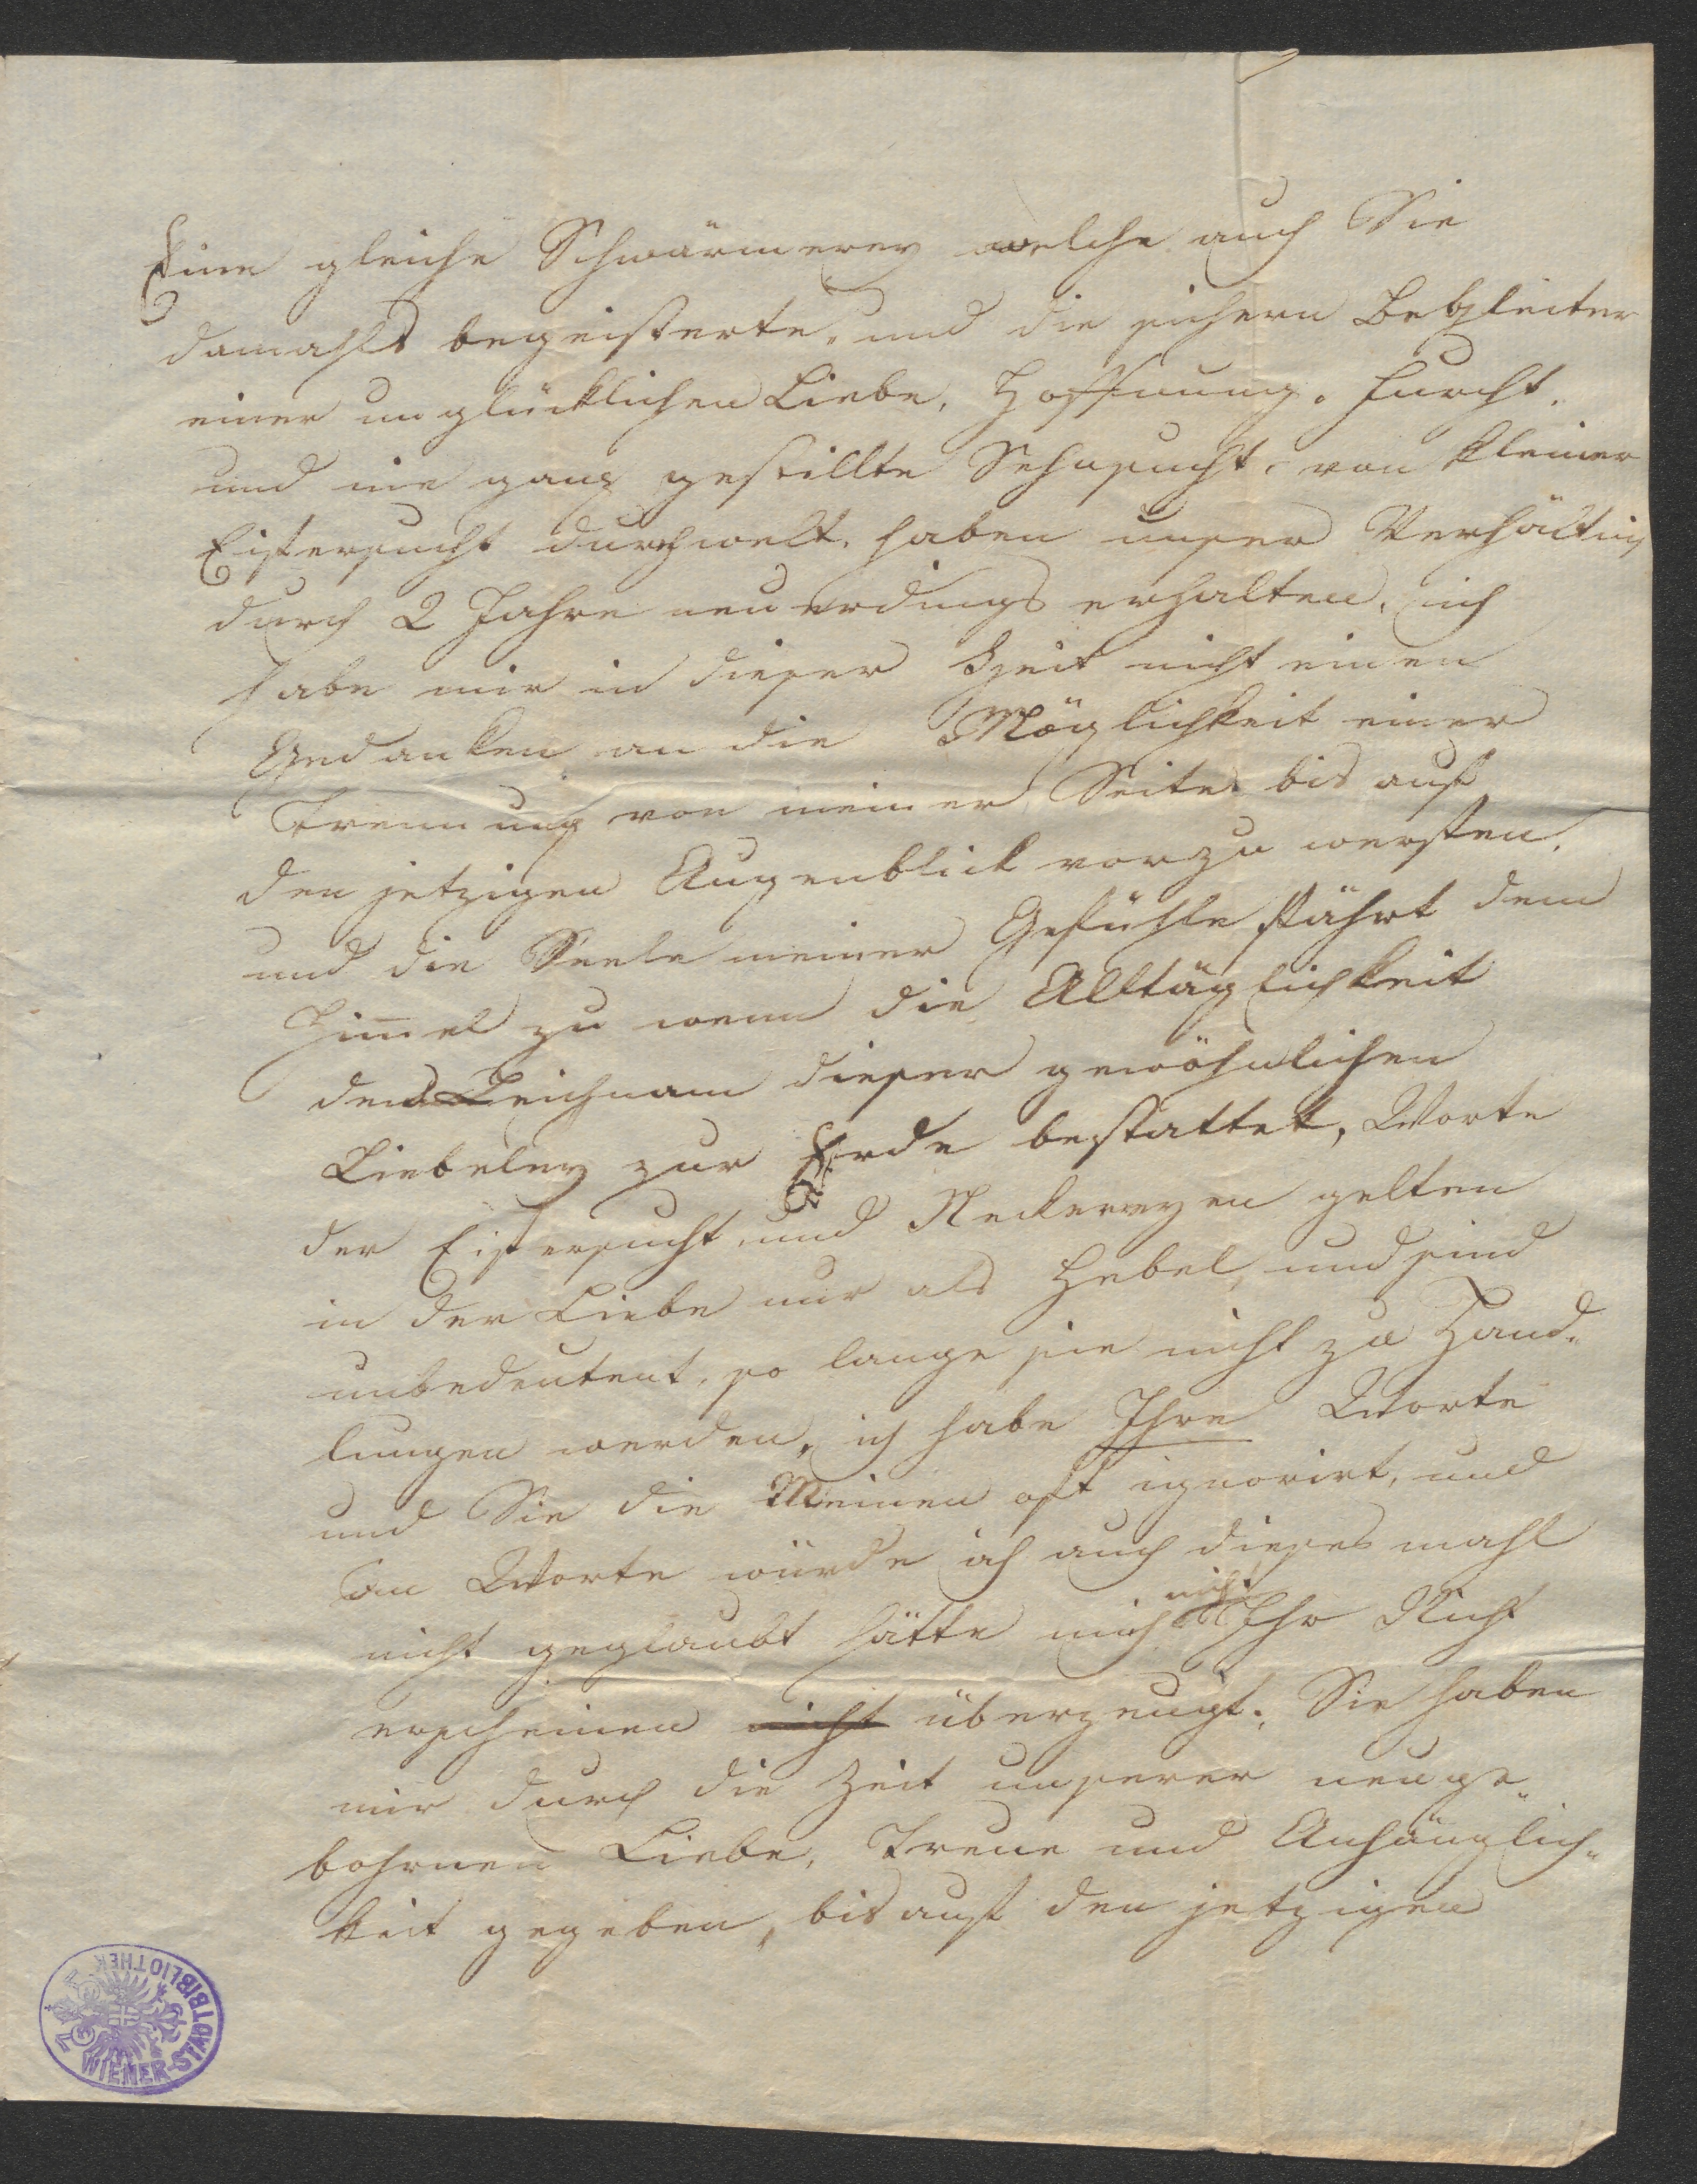 Eine gleiche Schwärmerey welche auch Sie
damahls begeisterte, und die sichern Begleiter
einer unglücklichen Liebe, Hoffnung, Furcht,
und nie ganz gestillte Sehnsucht, von kleiner
Eifersucht durchwelt, haben unser Verhältniß
durch 2 Jahre neuerdings erhalten, ich
habe mir in dieser Zeit nicht einen
Gedanken an die Möglichkeit einer
Trennung von meiner Seite bis auf
den jetzigen Augenblick vorzuwerfen.
und die Seele meiner Gefühle fährt dem
Him̅el zu wenn die Alltäglichkeit
den Leichnam dieser gewöhnlichen
Liebeley zur Erde bestattet, Worte
der Eifersucht und Neckereyen gelten
in der Liebe nur als Hebel, und sind
unbedeutent, so lange sie nicht zu Hand„
lungen werden, ich habe Ihre Worte
und Sie die Meinen oft ignorirt, und
an Worte würde ich auch dieses mahl
nicht geglaubt hätte mich nicht Ihr Nicht
erscheinen nicht überzeugt. Sie haben
mir durch die Zeit unserer neuge„
bohrnen Liebe, Treue und Anhänglich„
keit gegeben, bis auf den jetzigen
WIENER-STADTBIBLIOTHEK